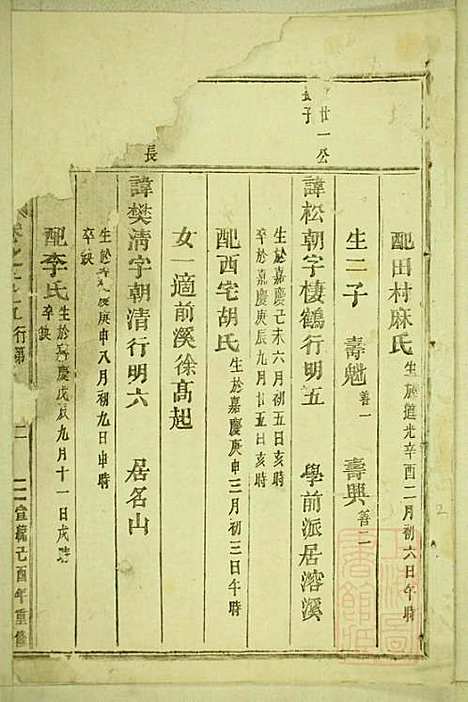 配田村麻氏 生於道光辛酉二月初六日午時
生二子 壽魁 善一 壽興 善二
廿一公
子
諱松朝字棲鶴行明五 學前派居溶溪
生於嘉慶己未六月初五日亥時
卒於嘉慶庚辰九月廿五亥時
配西宅胡氏 生於嘉慶庚申三月初三日午時
女一適前溪徐高起
長
諱樊清字朝清行明六 居名山
生於 庚申八月初九日申時
卒缺
配李氏 生於嘉慶戊辰九月十一日戌時
卒缺
卷之 行第 二 宣統己酉年重修